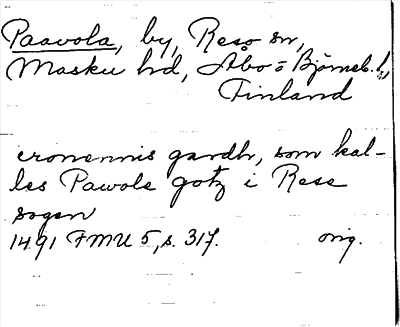 Paavola, by, Reso sn,
Masku hd, Åbo o Björneb. l.,
Finland
cronennis gardh, som kal-
les Pawole gotz i Rese
sogen
1491 FMU 5, s. 317. orig.